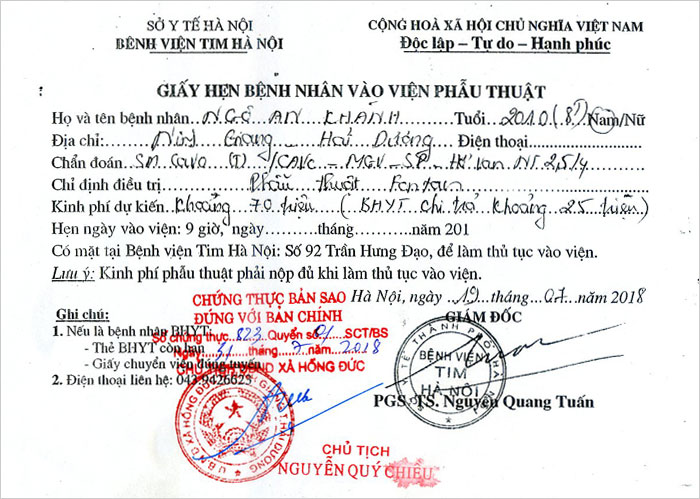 SỞ Y TẾ HÀ NỘI
BỆNH VIỆN TIM HÀ NỘI
CỘNG HOÀ XÃ HỘI CHỦ NGHĨA VIỆT NAM
Độc lập – Tự do – Hạnh phúc
GIẤY HẸN BỆNH NHÂN VÀO VIỆN PHẪU THUẬT
Họ và tên bệnh nhân NGÔ AN KHÁNH Tuổi 2010 (8T) Nam/Nữ
Địa chỉ: Ninh Giang Hải Dương Điện thoại
Chẩn đoán: (T) / CAVC - MGV - SP - 2,5/4
Chỉ định điều trị Phẫu thuật Fontan
Kinh phí dự kiến Khoảng 70 triệu (BHYT chi trả khoảng 25 triệu)
Hẹn ngày vào viện: 9 giờ, ngày...............tháng.............năm 201
Có mặt tại Bệnh viện Tim Hà Nội: Số 92 Trần Hưng Đạo, để làm thủ tục vào viện.
Lưu ý: Kinh phí phẫu thuật phải nộp đủ khi làm thủ tục vào viện.
Hà Nội, ngày 19 tháng 07 năm 2018
CHỨNG THỰC BẢN SAO
ĐÚNG VỚI BẢN CHÍNH
Số chứng thực 823 Quyển số 01 SCT/BS
Ngày 31 tháng 7 năm 2018
UBND XÃ HỒNG ĐỨC
Ghi chú:
1. Nếu là bệnh nhân BHYT:
- Thẻ BHYT còn hạn
- Giấy chuyển viện đúng tuyến
2. Điện thoại liên hệ: 043.9426623
GIÁM ĐỐC
BỆNH VIỆN
TIM
HÀ NỘI
PGS. TS. Nguyễn Quang Tuấn
CHỦ TỊCH
NGUYỄN QUÝ CHIỂU